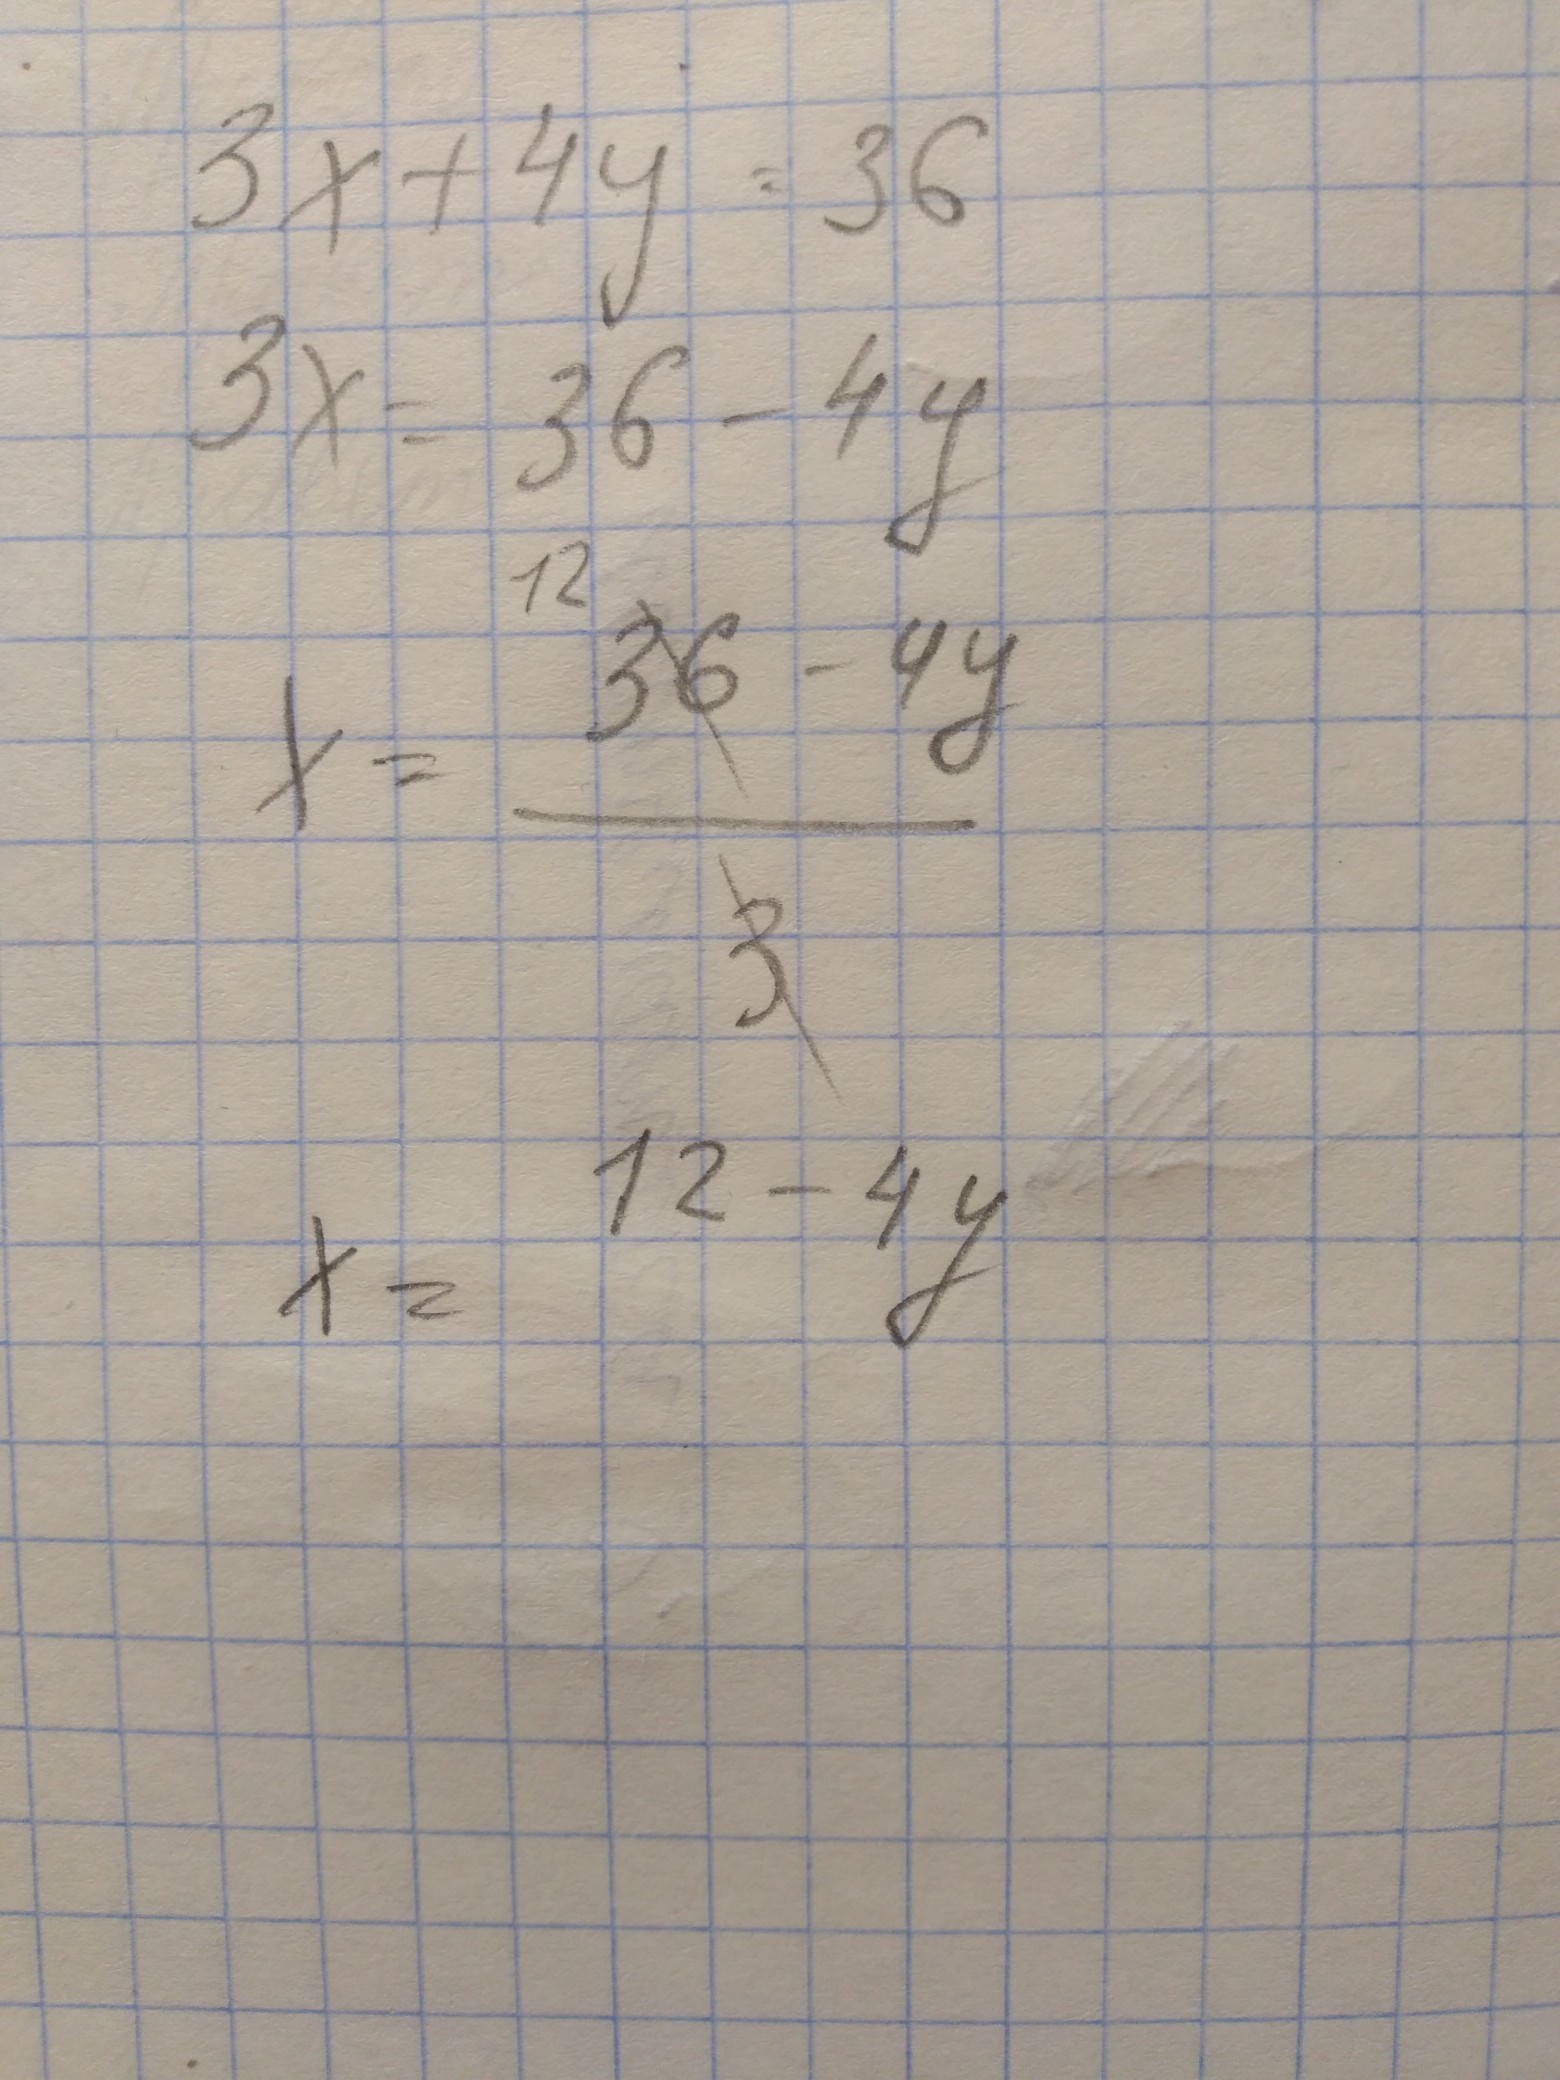 3x+4y=36
3x=36-4y
12
x= 36-4y
3
x= 12-4y